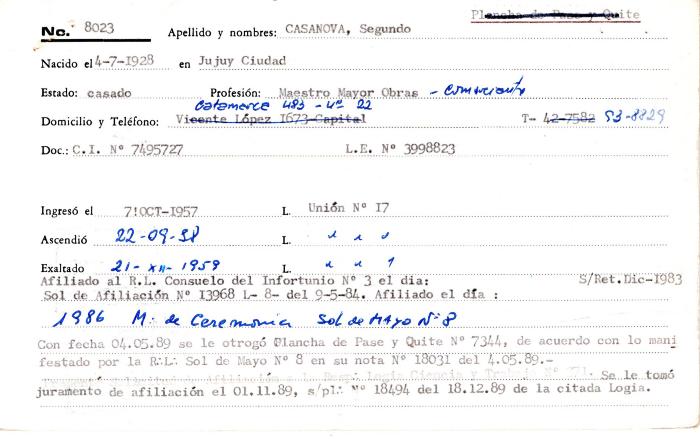 Plancha de Pase y Quite
No. 8023 Apellido y nombres: CASANOVA, Segundo
Nacido el 4-7-1928 en Jujuy Ciudad
Estado: casado Profesión: Maestro Mayor Obras - comerciante
Catamarca 483 - 4º 22
Domicilio y Teléfono: Vicente López I673-Capital T- 42-7582 53-8829
Doc.: C.I. Nº 7495727 L.E. Nº 3998823
Ingresó el 7!OCT-I957 L. Unión Nº I7
Ascendió 22-09-58 L. " " "
Exaltado 21-XII-1959 L. " " "
Afiliado al R.L. Consuelo del Infortunio Nº 3 el dia: S/Ret.Dic-I983
Sol de Afiliación Nº I3968 L- 8- del 9-5-84. Afiliado el día :
1986 M∴ de Ceremonia Sol de Mayo Nº 8
Con fecha 04.05.89 se le otrogó Plancha de Pase y Quite Nº 7344, de acuerdo con lo mani
festado por la R∴L∴ Sol de Mayo Nº 8 en su nota Nº 18031 del 4.05.89.-
Afiliación a la Resp. Logia Ciencia y Trabajo Nº 71. Se le tomó
juramento de afiliación el 01.11.89, s/pl∴ Nº 18494 del 18.12.89 de la citada Logia.